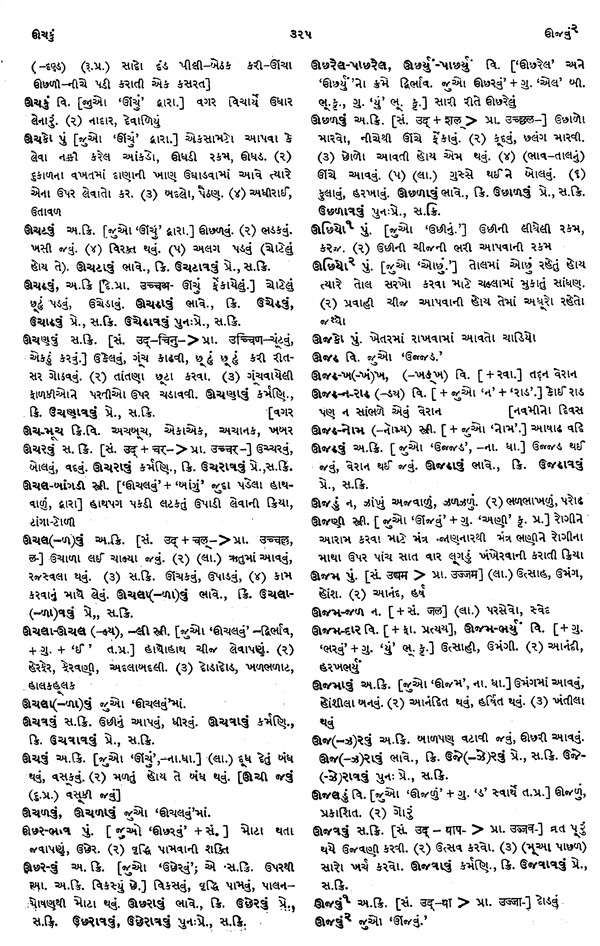 ઊચકું
૩૨૫
ઊજવું૨
(-દણ્ડ) (રૂ.પ્ર.) સાદો દંડ પીલી-બેઠક કરી-ઊંચા
ઊછળી-નીચે પડી કરાતી એક કસરત]
ઊચકું વિ. [જુઓ ‘ઊંચું’ દ્વારા.] વગર વિચાર્યે ઉધાર
લેનારું. (૨) નાદાર, દેવાળિયું
ઊચકો પું [જુઓ ‘ઊંચું’ દ્વારા.] એકસામટો આપવા કે
લેવા નક્કી કરેલ આંકડો, ઊધડી રકમ, ઊધડ. (૨)
દુકાળના વખતમાં દાણાની ખાણ ઉઘાડવામાં આવે ત્યારે
એના ઉપર લેવાતો કર. (૩) બદલો, પૈઠણ. (૪) અધીરાઈ,
ઉતાવળ
ઊચટવું અ.ક્રિ. [જુઓ ‘ઊંચું’ દ્વારા.] ઊછળવું. (૨) ભડકવું.
ખસી જવું. (૪) વિરક્ત થવું. (૫) અલગ પડવું (ચોટેલું
હોય તે). ઊચટાવું ભાવે., ક્રિ. ઉચટાવવું પ્રે., સ.ક્રિ.
ઊચઢવું, અ.ક્રિ [દે.પ્રા. उच्चड्ड- ઊંચું ફેંકાયેલું.] ચોટેલું
છૂટું પડવું, ઉચેડાવું. ઊચઢાવું ભાવે., ક્રિ. ઉચેઢવું,
ઉચાઢવું પ્રે., સ.ક્રિ. ઉચેઢાવવું પુનઃપ્રે., સ.ક્રિ.
ઊચણવું સ.ક્રિ. [સં. उद्-चिनु-> પ્રા. उच्चिण-ચૂંટવું,
એકઠું કરવું.] ઉકેલવું, ગૂંચ કાઢવી, છૂટું છૂટું કરી રીત-
સર ગોઠવવું. (૨) તાંતણા છૂટા કરવા. (૩) ગૂંચવાયેલી
ફાળકીઓને પરતીઓ ઉપર ચડાવવી. ઊચણાવું કર્મણિ.,
ક્રિ. ઉચણાવવું પ્રે., સ.ક્રિ. [વગર
ઊચ-મૂચ ક્રિ.વિ. અચબૂચ, એકાએક, અચાનક, ખબર
ઊચરવું સ.ક્રિ. [સં. उद् + चर-> પ્રા. उच्चर-] ઉચ્ચરવું,
બોલવું, વદવું. ઊચરાવું કર્મણિ., ક્રિ. ઉચરાવવું પ્રે.,સ.ક્રિ.
ઊચલ-બાંગડી સ્ત્રી. [‘ઊચલવું’ + ‘બાંગું’ જુદા પડેલા હાથ-
વાળું, દ્વારા] હાથપગ પકડી લટકતું ઉપાડી લેવાની ક્રિયા,
ટાંગા-ટોળી
ઊચલ(-ળ)વું અ.ક્રિ. [સં. उद् + चल्-> પ્રા. उच्चल्ल,
ल-] ઉચાળા લઈ ચાલ્યા જવું. (૨) (લા.) ઋતુમાં આવવું,
રજસ્વલા થવું. (૩) સ.ક્રિ. ઊંચકવું, ઉપાડવું, (૪) કામ
કરવાનું માથે લેવું. ઊચલા(-ળા)વું ભાવે., ક્રિ. ઉચલા-
(-ળા)વવું પ્રે., સ.ક્રિ.
ઊચલા-ઊચલ (-લ્ય), -લી સ્ત્રી. [જુઓ ‘ઊચલવું’ -દ્વિર્ભાવ,
+ ગુ. + ‘ઈ’ ત.પ્ર.] હાથોહાથ ચીજ લેવાપણું. (૨)
હેરફેર, ફેરવણી, અદલાબદલી. (૩) દોડાદોડ, ખળભળાટ,
હાલકહૂલક
ઊચલા(-ળા)વું જુઓ ‘ઊચલવું’માં.
ઊચવવું સ.ક્રિ. ઉછીનું આપવું, ધીરવું. ઊચવાવું કર્મણિ.,
ક્રિ. ઉચવાવવું પ્રે., સ.ક્રિ.
ઊચવું અ.ક્રિ. [જુઓ ‘ઊંચું’,-ના.ધા.] (લા.) દૂધ દેતું બંધ
થવું, વસૂકવું. (૨) મળતું હોય તે બંધ થવું. [ઊચી જવું
(રૂ.પ્ર.) વસૂકી જવું]
ઊચળવું, ઊચાળાવું જુઓ ‘ઊચલવું’માં.
ઊછર-ભાવ પું. [જુઓ ‘ઊછરવું’ + સં.] મોટા થતા
જવાપણું, ઉછેર. (૨) વૃદ્ધિ પામવાની શક્તિ
ઊછરવું અ.ક્રિ. [જુઓ ‘ઉછેરવું’; એ સ.ક્રિ. ઉપરથી
આ. અ.ક્રિ. વિકસ્યું છે.] વિકસવું, વૃદ્ધિ પામવું, પાલન-
પોષણથી મોટા થવું. ઊછરાવું ભાવે., ક્રિ. ઉછેરવું પ્રે.,
સ.ક્રિ. ઉછરાવવું, ઉછેરાવવું પુનઃપ્રે., સ.ક્રિ.
ઊછરેલ-પાછરેલ, ઊછર્યું-પાછર્યું વિ. [‘ઊછરેલ’ અને
‘ઊછર્યું’ને ક્રમે દ્વિર્ભાવ. જુઓ ઊછરવું + ગુ. ‘એલ’ બી.
ભૂ.કૃ., ગુ. ‘યું’ ભૂ. કૃ.] સારી રીતે ઊછરેલું
ઊછળવું અ.ક્રિ. [સં. उद् + शल् > પ્રા. उच्छल-] ઉછાળો
મારવો, નીચેથી ઊંચે ફેંકાવું. (૨) કૂદવું, છલંગ મારવી.
(૩) છોળો આવતી હોય એમ થવું. (૪) (ભાવ-તાલનું)
ઊંચે આવવું. (૫) (લા.) ગુસ્સે થઈને બોલવું. (૬)
ફુલાવું, હરખાવું. ઊછળાવું ભાવે., ક્રિ. ઉછાળવું પ્રે., સ.ક્રિ.
ઉછળાવવું પુનઃપ્રે., સ.ક્રિ.
ઊછિયો૧ પું. [જુઓ ‘ઉછીનું.’] ઉછીની લીધેલી રકમ,
કરજ. (૨) ઉછીની ચીજની ભરી આપવાની રકમ
ઊછિયો૨ પું. [જુઓ ‘ઓછું.’] તોલમાં ઓછું રહેતું હોય
ત્યારે તોલ સરખો કરવા માટે ચલ્લામાં મુકાતું સાંધણ.
(૨) પ્રવાહી ચીજ આપવાની હોય તેમાં અધૂરો રહેતો
જથ્થો
ઊજકો પું. ખેતરમાં રાખવામાં આવતો ચાડિયો
ઊજઢ વિ. જુઓ ‘ઉજ્જડ.’
ઊજઢ-ખ(-ખં)ખ, (-ખઙ્ખ) વિ. [ + રવા.] તદ્દન વેરાન
ઊજઢ-ન-રાઢ (-ડય) વિ. [ + જુઓ ‘ન’ + ‘રાડ’.] કોઈ રાડ
પણ ન સાંભળે એવું વેરાન [નવમીનો દિવસ
ઊજઢ-નોમ (-નોમ્ય) સ્ત્રી. [ + જુઓ ‘નોમ’.] આષાઢ વદિ
ઊજઢવું અ.ક્રિ. [જુઓ ‘ઉજ્જડ’, -ના. ધા.] ઉજ્જડ થઈ
જવું, વેરાન થઈ જવું. ઊજઢાવું ભાવે., ક્રિ. ઉજઢાવવું
પ્રે., સ.ક્રિ.
ઊજડું ન, ઝાંખું અજવાળું, ઝળઝળું. (૨) ભળભાખળું, પરોઢ
ઊજણી સ્ત્રી. [જુઓ ‘ઊંજવું’ + ગુ. ‘અણી’ કૃ. પ્ર.] રોગીને
આરામ કરવા માટે મંત્ર-જાણનારથી મંત્ર ભણીને રોગીના
માથા ઉપર પાંચ સાત વાર લૂગડું ખંખેરવાની કરાતી ક્રિયા
ઊજમ પું. [સં. उद्यम > પ્રા. उज्जम] (લા.) ઉત્સાહ, ઉમંગ,
હોંશ. (૨) આનંદ, હર્ષ
ઊજમ-જળ ન. [ + સં. जल] (લા.) પરસેવો, સ્વેદ
ઊજમ-દાર વિ. [ + ફા. પ્રત્યય], ઊજમ-ભર્યું વિ. [ + ગુ.
‘ભરવું’ + ગુ. ‘યું’ ભૂ. કૃ.] ઉત્સાહી, ઉમંગી. (૨) આનંદી,
હરખભર્યું
ઊજમાવું અ.ક્રિ. [જુઓ ‘ઊજમ’, ના. ધા.] ઉમંગમાં આવવું,
હોંશીલા બનવું. (૨) આનંદિત થવું, હર્ષિત થવું. (૩) ખંતીલા
થવું
ઊજ(-ઝ)રવું અ.ક્રિ. બાળપણ વટાવી જવું, ઊછરી આવવું.
ઊજ(-ઝ)રાવું ભાવે., ક્રિ. ઉજે(-ઝે)રવું પ્રે., સ.ક્રિ. ઉજે-
(-ઝે)રાવવું પુનઃ પ્રે., સ.ક્રિ.
ઊજલડું વિ. [જુઓ ‘ઊજળું’ + ગુ. ‘ડ’ સ્વાર્થે ત.પ્ર.] ઊજળું,
પ્રકાશિત. (૨) ગોરું
ઊજવવું સ.ક્રિ. [સં. उद् - याप- > પ્રા. उज्जव-] વ્રત પૂરું
થયે ઉજવણી કરવી. (૨) ઉત્સવ કરવો. (૩) (મૂઆ પાછળ)
સારો ખર્ચ કરવો. ઊજવાવું કર્મણિ., ક્રિ. ઉજવાવવું પ્રે.,
સ.ક્રિ.
ઊજવું૧ અ.ક્રિ. [સં. उद्-या > પ્રા. उज्जा-] દોડવું
ઊજવું૨ જુઓ ‘ઊંજવું.’